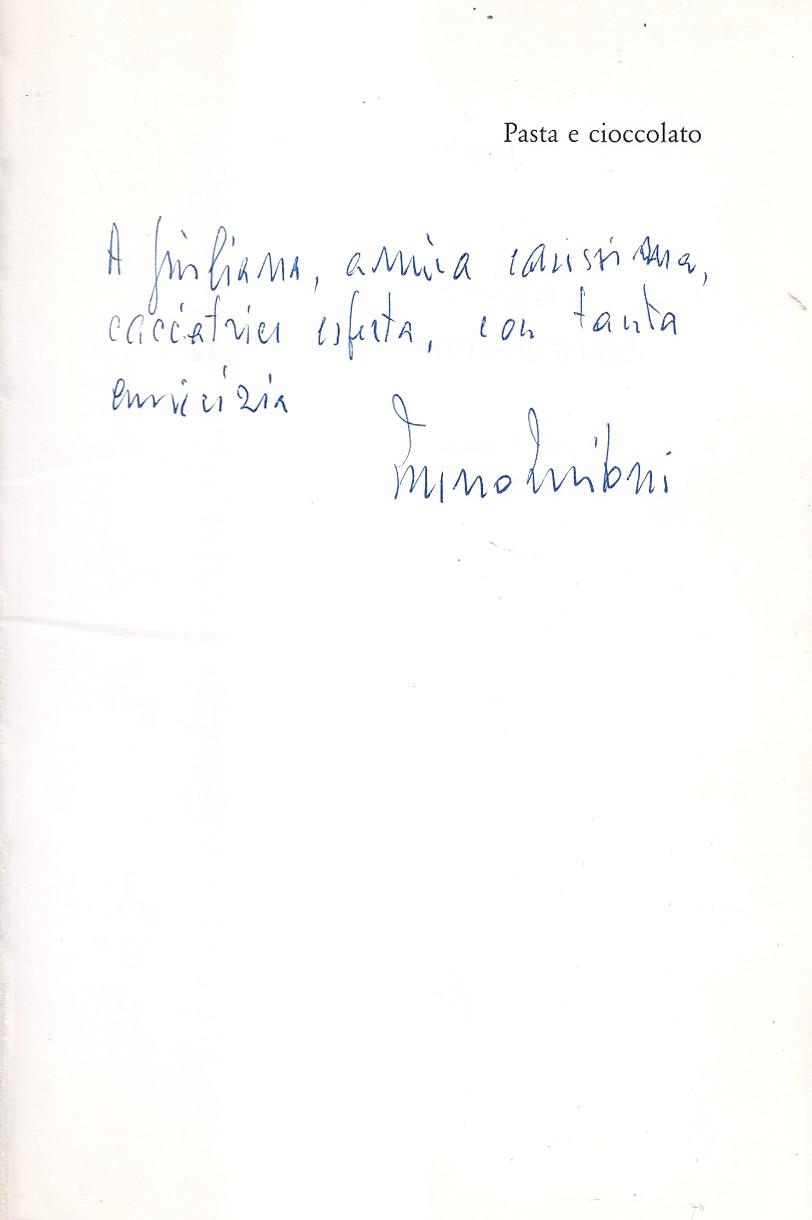 Pasta e cioccolato
A Giuliana, amica carissima,
cacciatrice esperta, con tanta
amicizia
Mino Milani